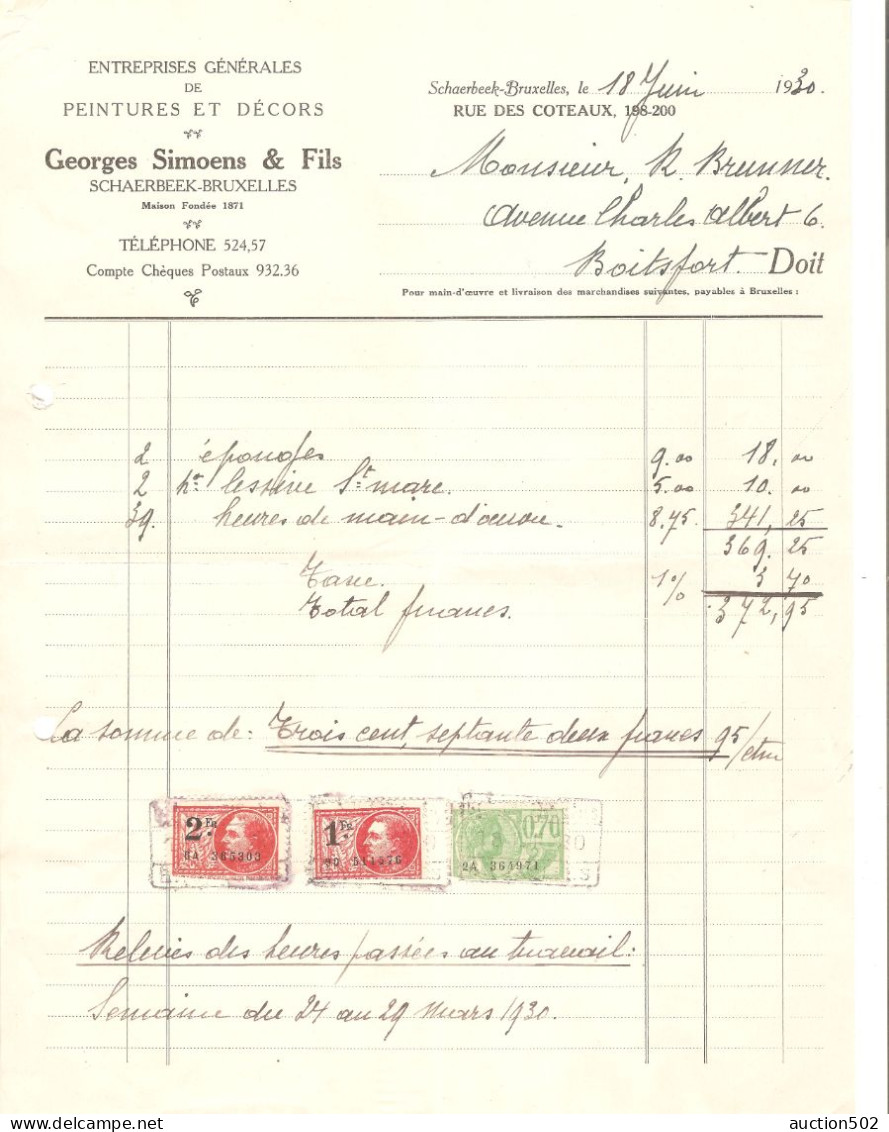 ENTREPRISES GÉNÉRALES
DE
PEINTURES ET DÉCORS
Georges Simoens & Fils
SCHAERBEEK-BRUXELLES
Maison Fondée 1871
TÉLÉPHONE 524,57
Compte Chèques Postaux 932.36
Schaerbeek-Bruxelles, le 18 Juin 1930.
RUE DES COTEAUX, 198-200
Monsieur, R. Brunner.
Avenue Charles Albert 6.
Boitsfort. Doit
Pour main-d'œuvre et livraison des marchandises suivantes, payables à Bruxelles :
2 éponges 9.00 18, 00
2 lessive St marc. 5.00 10. 00
39. heures de main-d'œuvre. 8,75. 341, 25
369. 25
Taxe. 1% 3 70
Total francs. 372,95
La somme de: Trois cent, septante deux francs 95/ctm
2 Fr 1 Fr 0.70
365300 2A 364971
Relevés des heures passées au travail:
Semaine du 24 au 29 mars 1930.
auction502